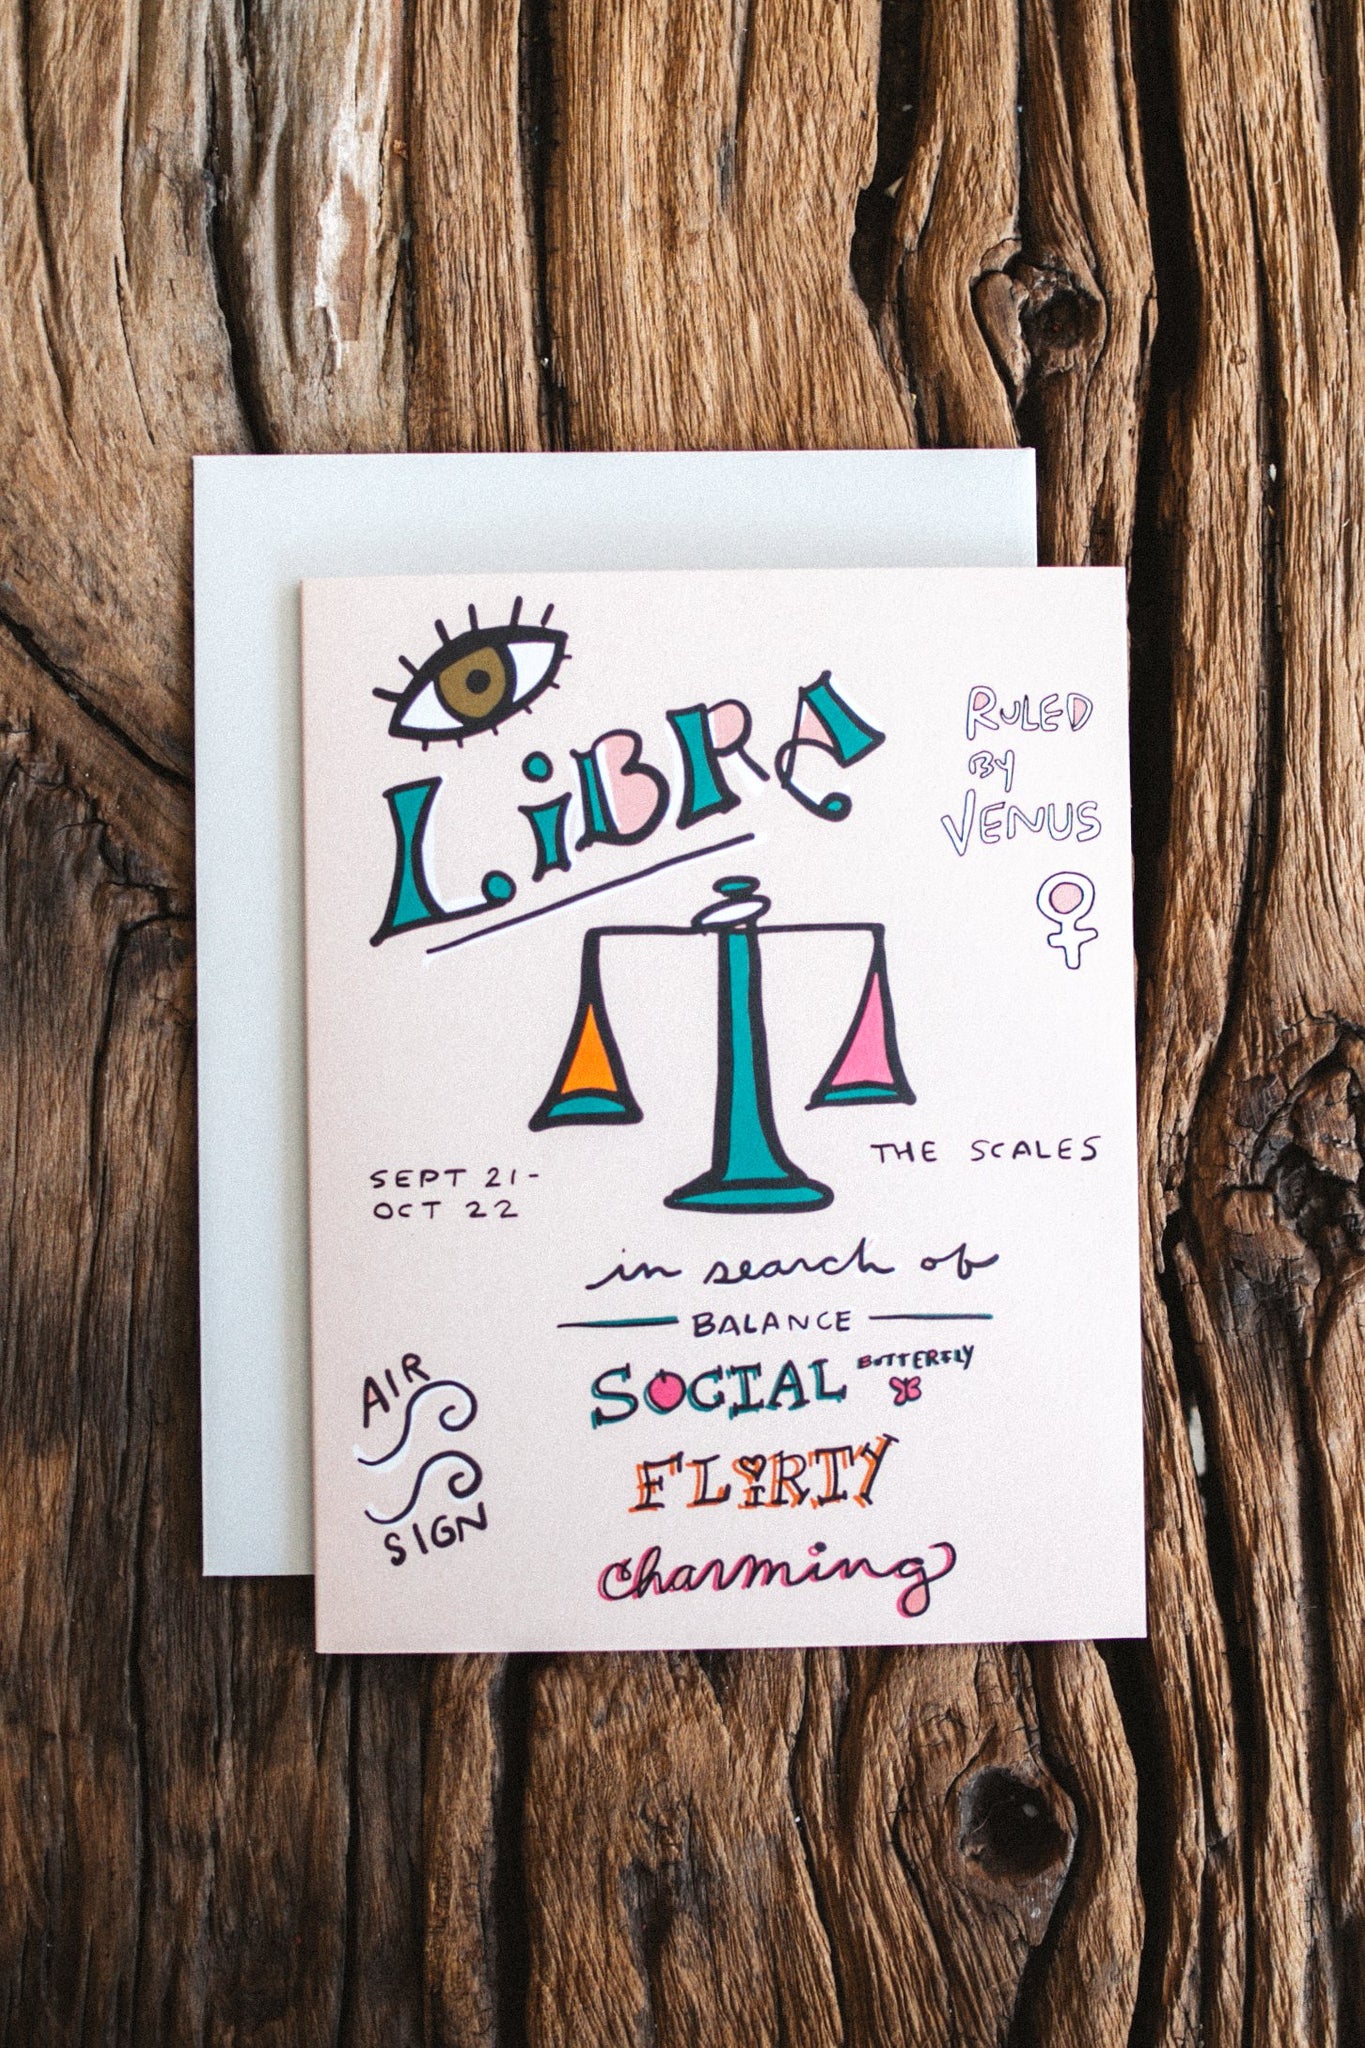 LiBRA
RULED
BY
VENUS
THE SCALES
SEPT 21-
OCT 22
in search of
BALANCE
SOCIAL BUTTERFLY
FLIRTY
charming
AIR
SIGN